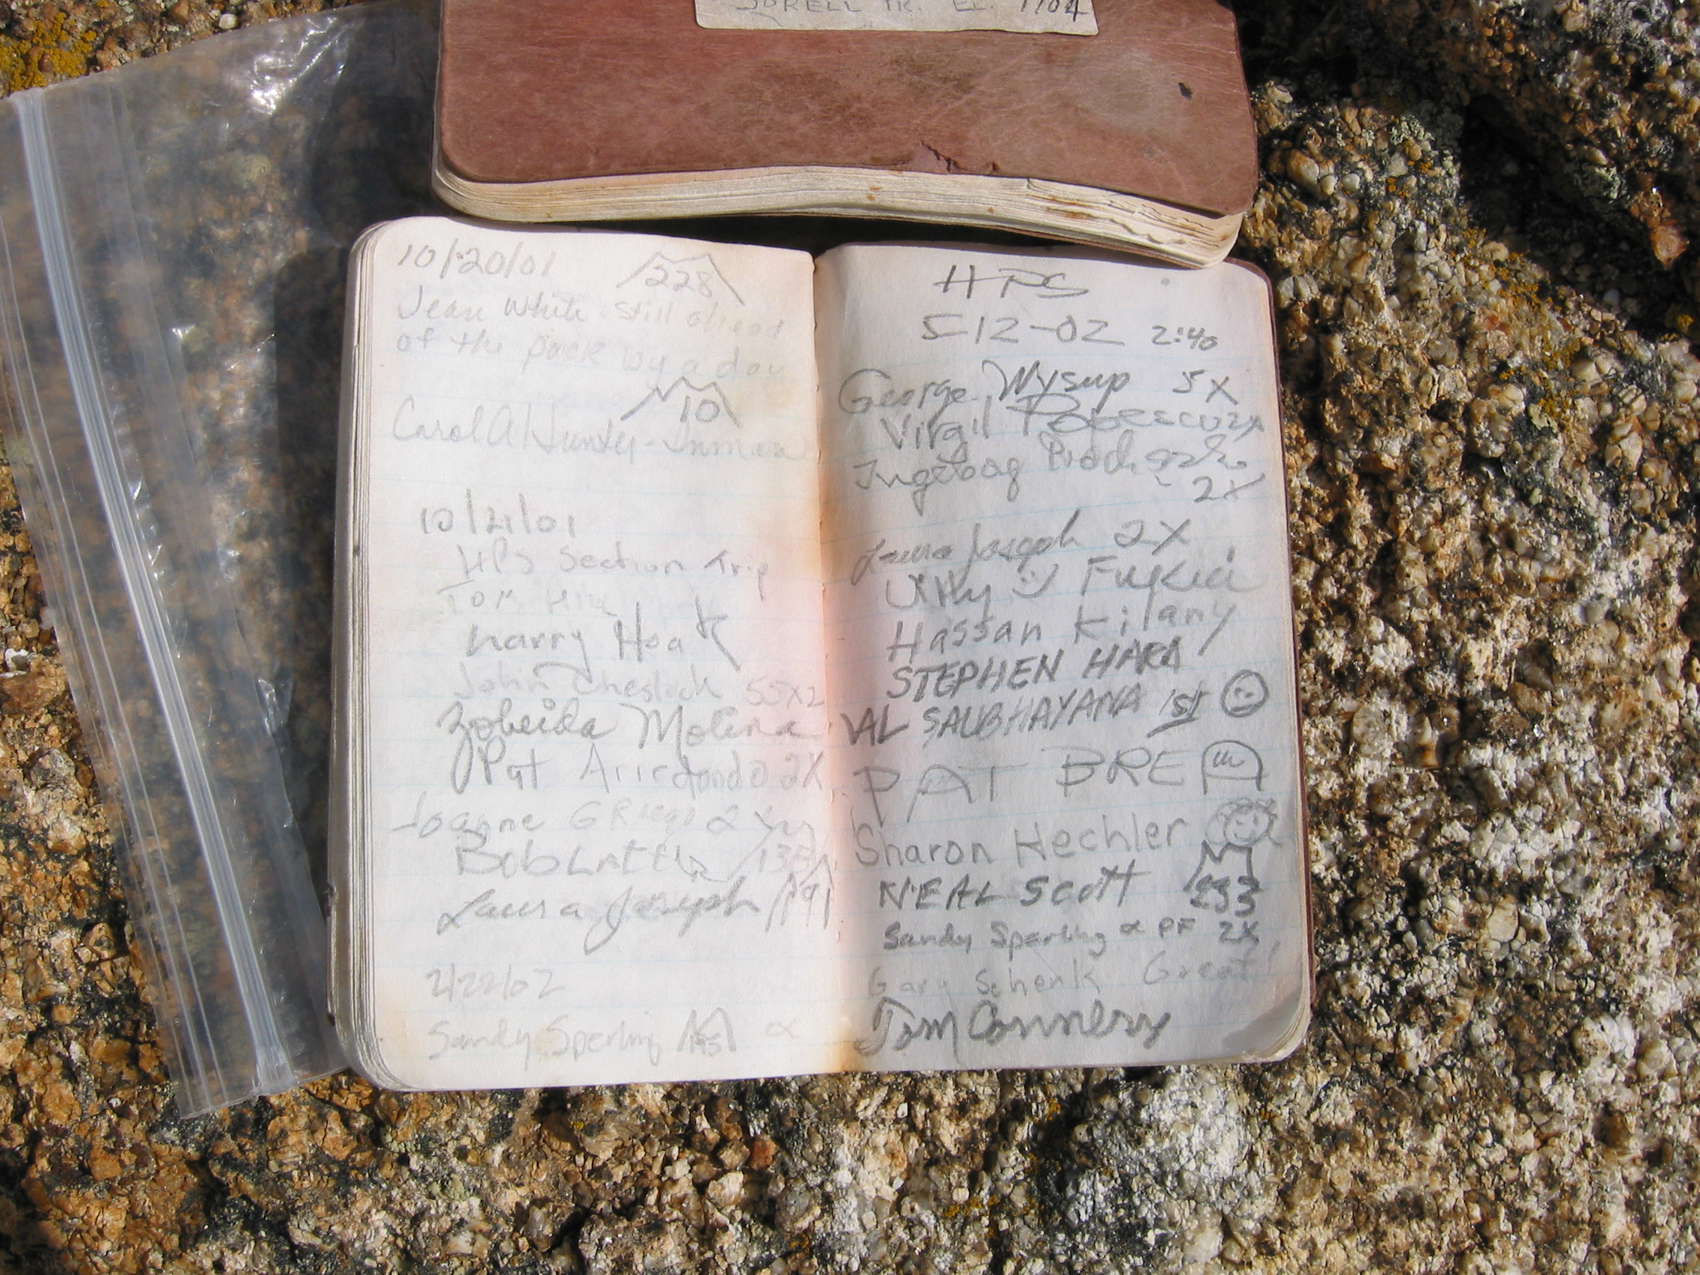 SORELL PK. EL. 7704
10/20/01 228
Jean White still ahead
of the pack by a day
10
Carol A Hunley-Inman
10/21/01
HPS Section Trip
Tom Hill
Harry Hoak
John Cheslick 55X2
Zobeida Molina
Pat Arredondo 2X
Joanne Griego 2
Bob 
Laura Joseph 191
2/22/02
Sandy Sperling
HPS
5-12-02 2:40
George Wysup 5X
Virgil Popescu 2X
Ingeborg
2X
Laura Joseph 2X
Fukui
Hassan Kilany
STEPHEN HARA
VAL SAUBHAYANA 1st
PAT BREA
Sharon Hechler
NEAL Scott 293
Sandy Sperling α PF 2X
Gary Schenk Great!
Tom Connery